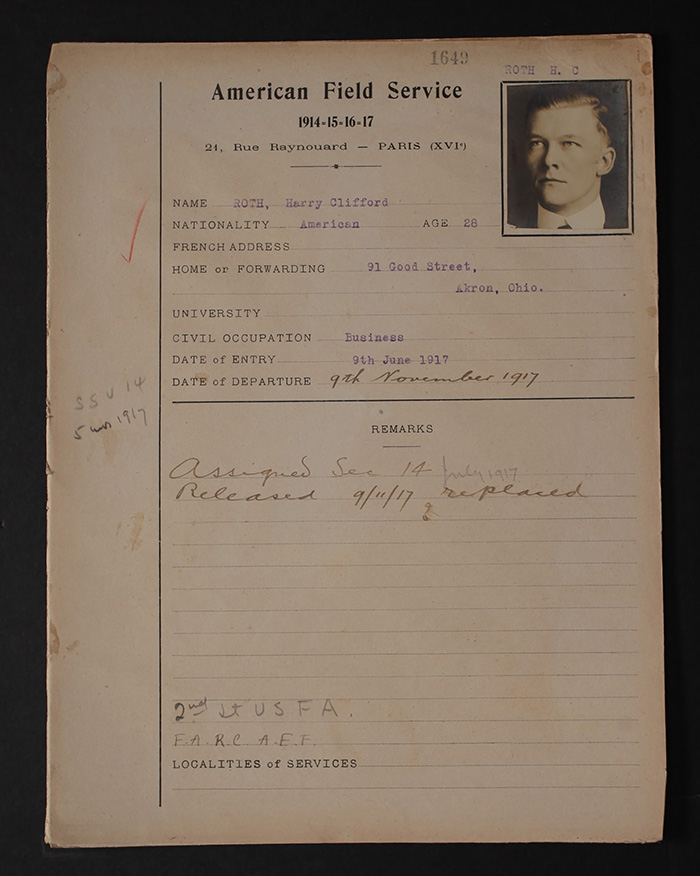 1649
ROTH H. C
American Field Service
1914-15-16-17
21, Rue Raynouard — PARIS (XVIe)
NAME ROTH, Harry Clifford
NATIONALITY American AGE 28
FRENCH ADDRESS
HOME or FORWARDING 91 Good Street,
Akron, Ohio.
UNIVERSITY
CIVIL OCCUPATION Business
DATE of ENTRY 9th June 1917
DATE of DEPARTURE 9th November 1917
SSU 14
5 1917
REMARKS
Assigned Sec 14 July 1917
Released 9/11/17 replaced
?
2nd Lt U S F A.
F.A.R.C. A.E.F.
LOCALITIES of SERVICES